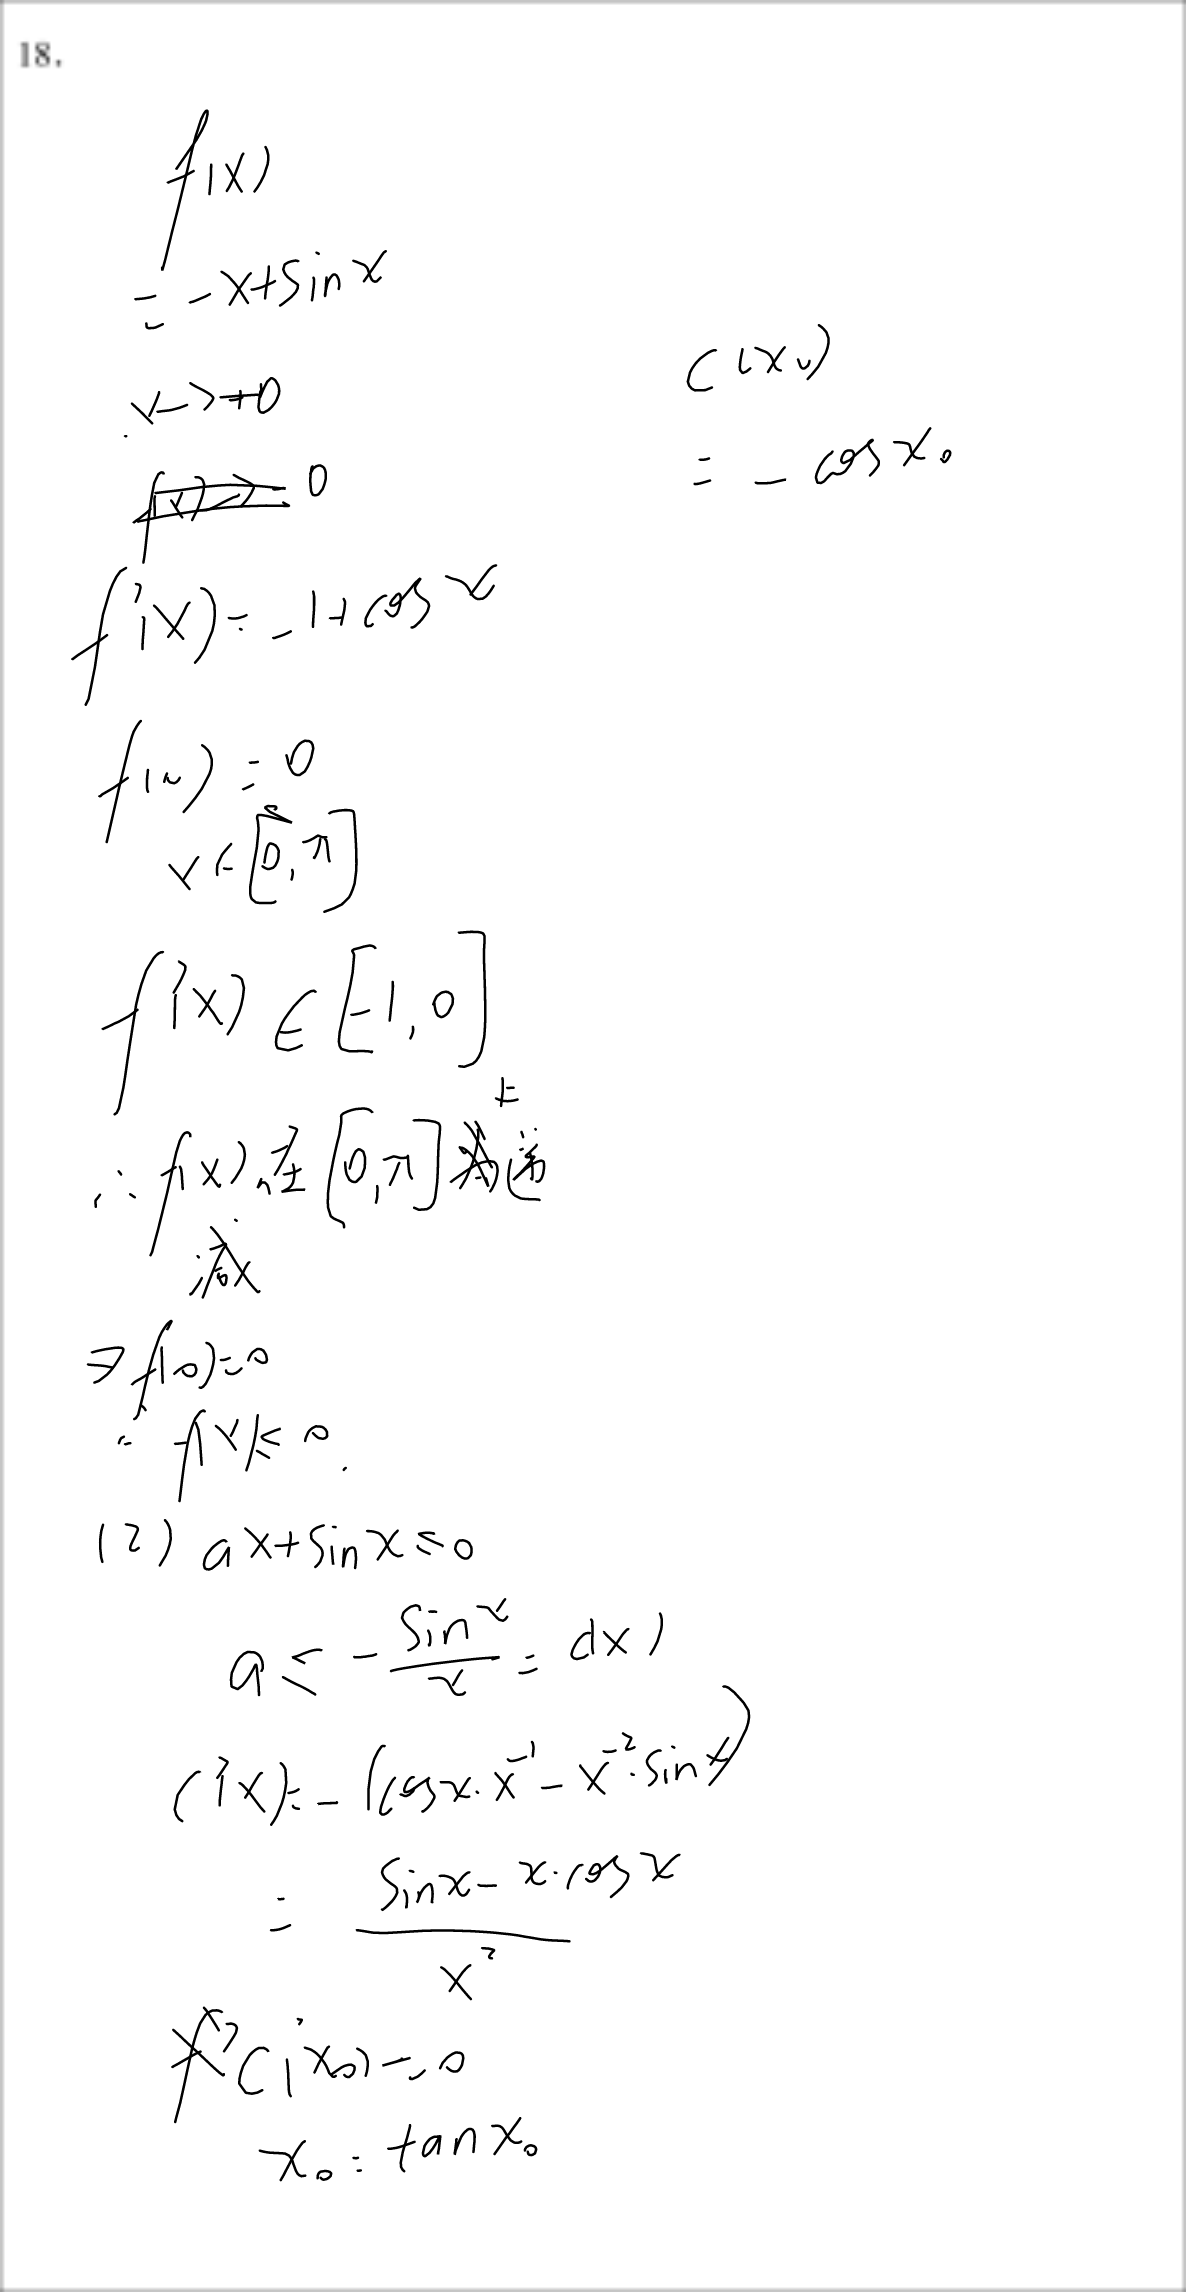 18.
f(x)
= -x+sin x
x->+0
0
f'(x)=-1+cos x
f(x)=0
x∈[0,π]
f'(x)∈[-1,0]
上
∴f(x)在[0,π]递
减
⇒f(0)=0
∴f(x)≤0.
(2) ax+sin x≤0
a≤-sin x/x=c(x)
c'(x)=-(cos x·x⁻¹-x⁻²·sin x)
=(sin x-x·cos x)/x²
c'(x₀)=0
x₀=tan x₀
c(x₀)
=-cos x₀